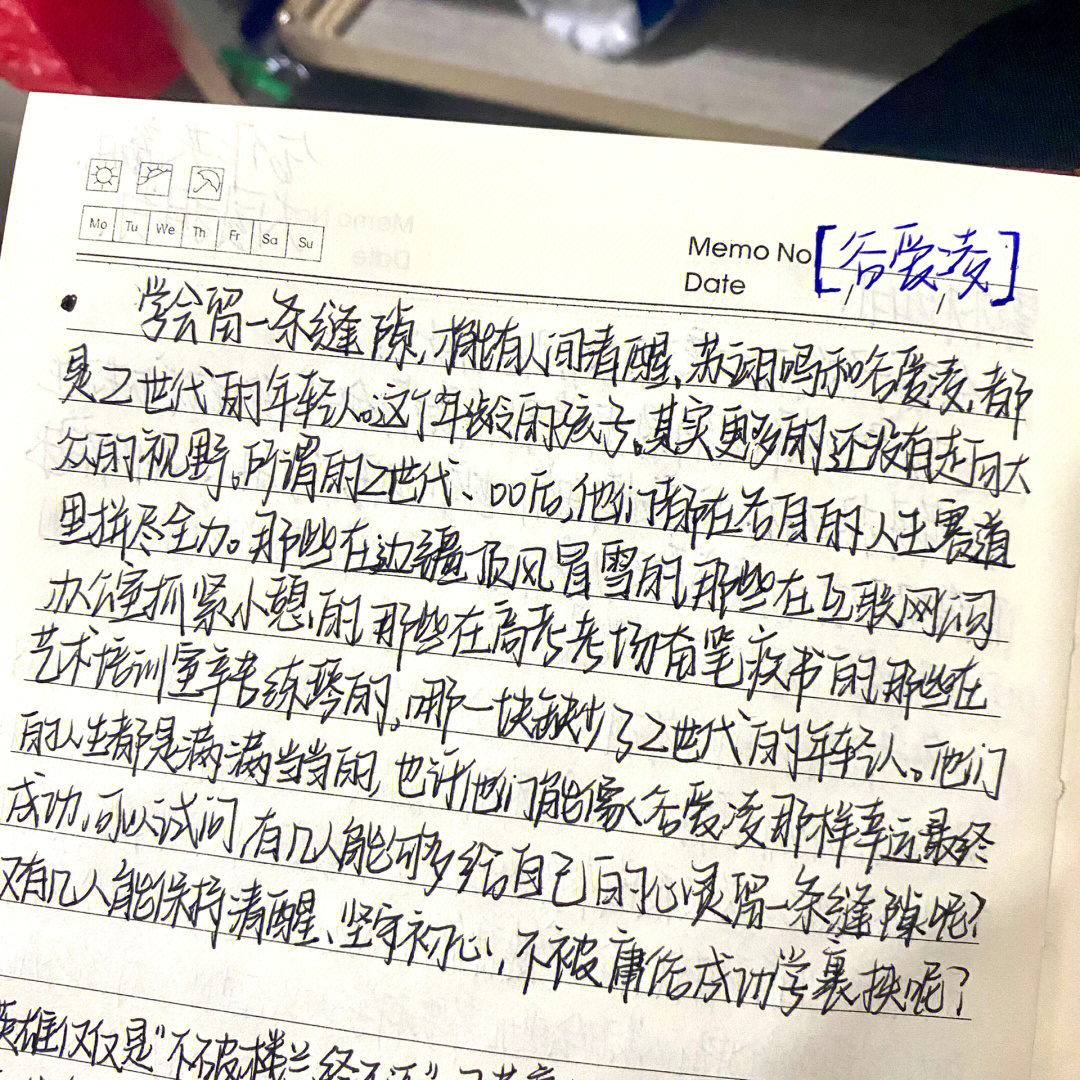 Mo Tu We Th Fr Sa Su
Memo No [谷爱凌]
Date
学会留一条缝隙,才能有人间清醒,苏翊鸣和谷爱凌,都
是Z世代的年轻人。这个年龄的孩子。其实更多的还没有走向大
众的视野。所谓的Z世代、00后,他们都在各自的人生赛道
里拼尽全力。那些在边疆顶风冒雪的,那些在互联网间
办公室抓紧小憩的,那些在高考考场奋笔疾书的,那些在
艺术培训室辛苦练琴的。哪一块缺少了Z世代的年轻人。他们
的人生都是满满当当的,也许他们能像谷爱凌那样幸运最终
成功,可以试问有几人能够多给自己的心灵留一条缝隙呢?
又有几人能保持清醒、坚守初心,不被庸俗成功学裹挟呢?
英雄仅仅是"不破楼兰终不还"